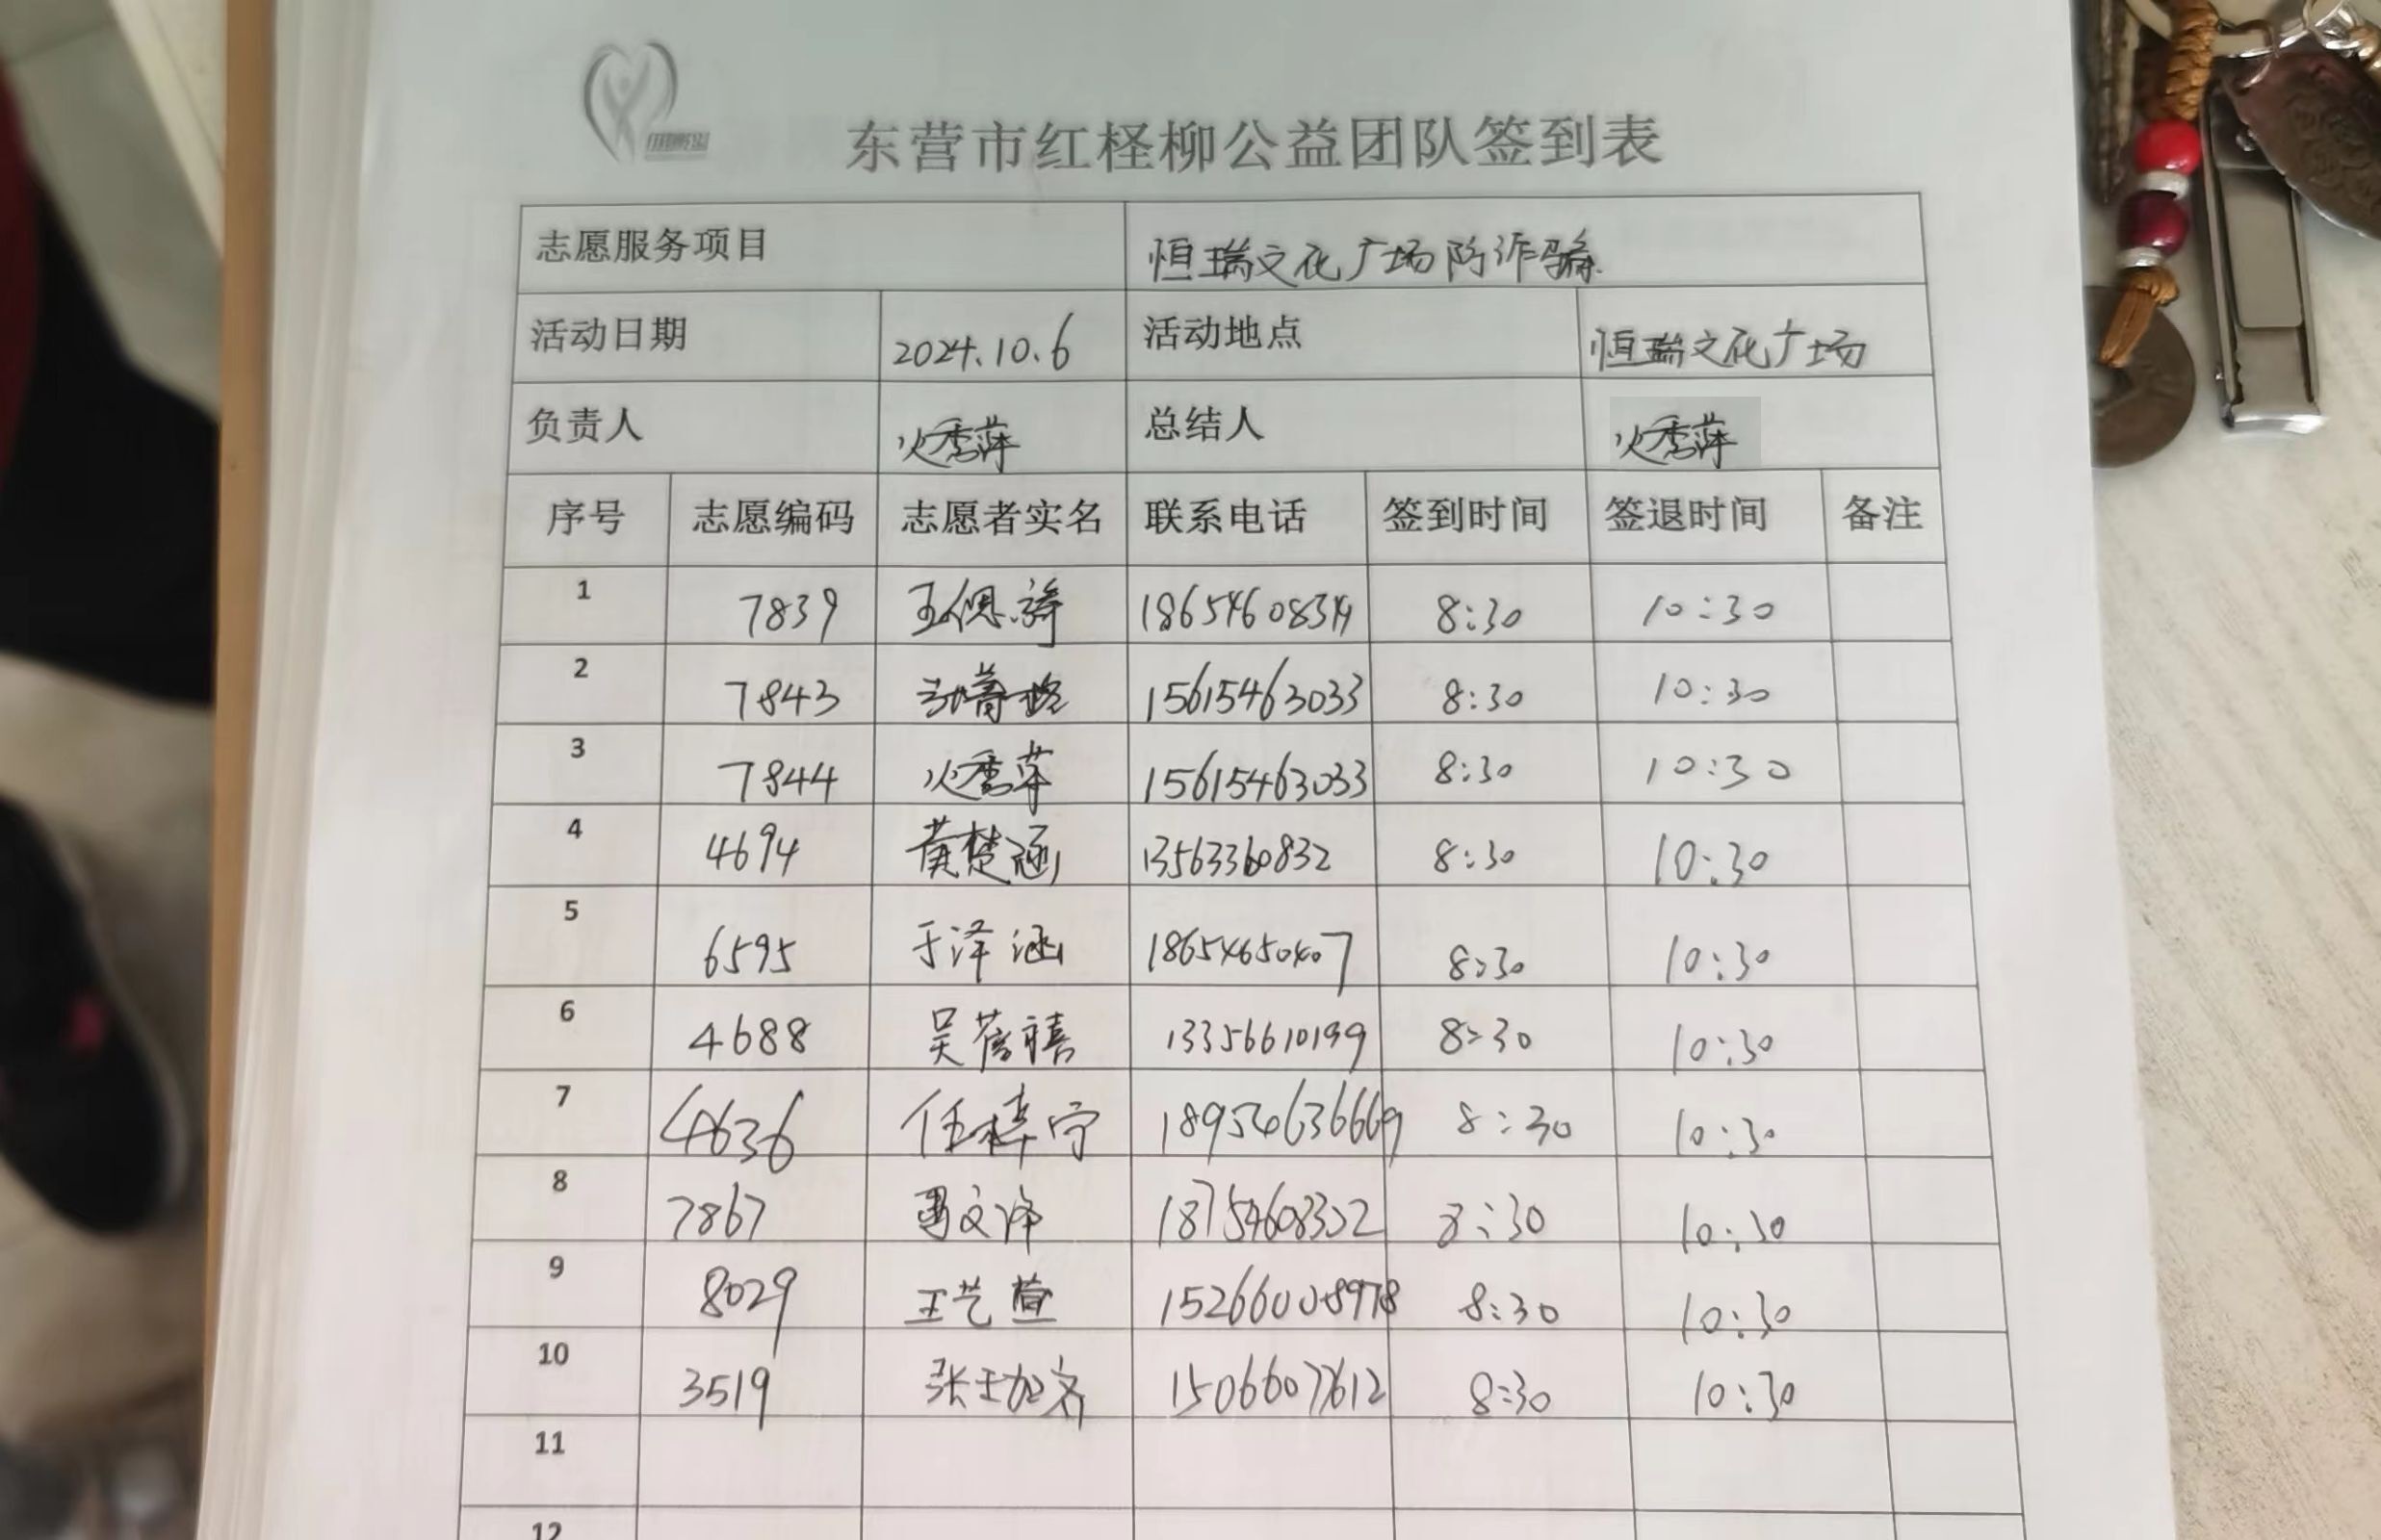 东营市红柽柳公益团队签到表
志愿服务项目 恒瑞文化广场防诈骗
活动日期 2024.10.6 活动地点 恒瑞文化广场
负责人 火秀萍 总结人 火秀萍
序号 志愿编码 志愿者实名 联系电话 签到时间 签退时间 备注
1 7839 8:30 10:30
2 7843 15615463033 8:30 10:30
3 7844 火秀萍 15615463033 8:30 10:30
4 4694 黄楚涵 13563360832 8:30 10:30
5 6595 于泽涵 18654650407 8:30 10:30
6 4688 13356610199 8:30 10:30
7 4636 任梓宁 18954636669 8:30 10:30
8 7867 18754608302 8:30 10:30
9 8029 王艺萱 8:30 10:30
10 3519 15066077612 8:30 10:30
11
12